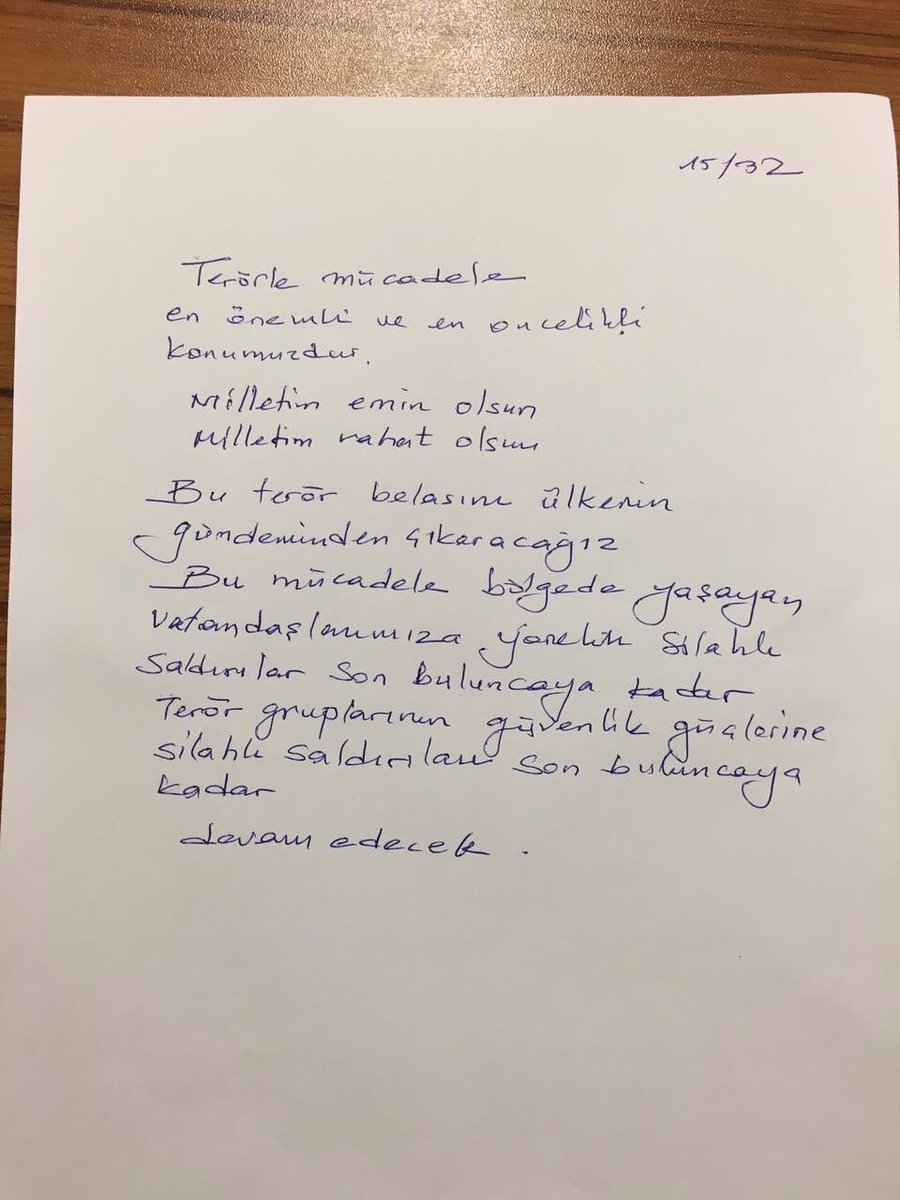 15/32
Terörle mücadele
en önemli ve en öncelikli
konumuzdur.
Milletim emin olsun
Milletim rahat olsun
Bu terör belasını ülkenin
gündeminden çıkaracağız
Bu mücadele bölgede yaşayan
vatandaşlarımıza yönelik silahlı
saldırılar son buluncaya kadar
Terör gruplarının güvenlik güçlerine
silahlı saldırıları son buluncaya
kadar
devam edecek.